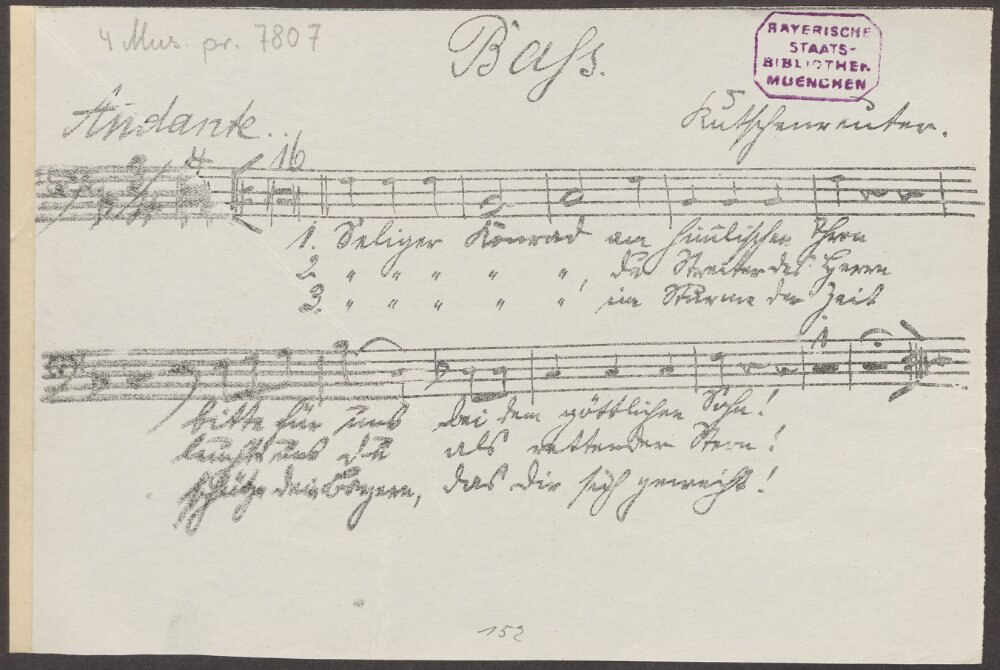 4 Mus. pr. 7807
Bass.
BAYERISCHE
STAATS-
BIBLIOTHEK
MUENCHEN
Andante..
Kutschenreuter.
4 16
1. Seliger Konrad am himmlischen Thron
2. " " " " " , du Streiter des Herrn
3. " " " " " , im Sturme der Zeit
1
bitte für uns bei dem göttlichen Sohn!
leucht uns du als rettender Stern!
schütze dein Bayern, das dir sich geweiht!
152